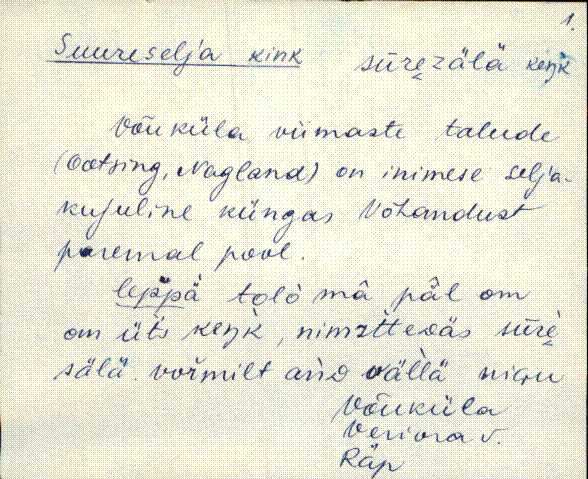 1.
Suureselja kink sūrezälä keŋ̀k
Võuküla viimaste talude
(Ootsing, Nagland) on inimese selja-
kujuline küngas Võhandust
paremal pool.
leppä tolò mâ päl om
om üt̀s keŋ̀k, nimǝttedäs sūrè
sälä. vor̀milt and vällä nigu
Võuküla
Veriora v.
Räp